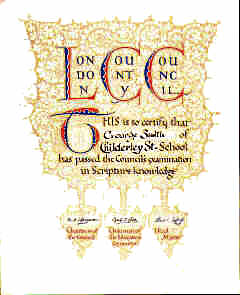 LONDON COUNTY COUNCIL
THIS is to certify that
George Smith of
Childerley St- School
has passed the Council's examination
in Scripture knowledge
Chairman of the Council
Chairman of the Education Committee
Head Master